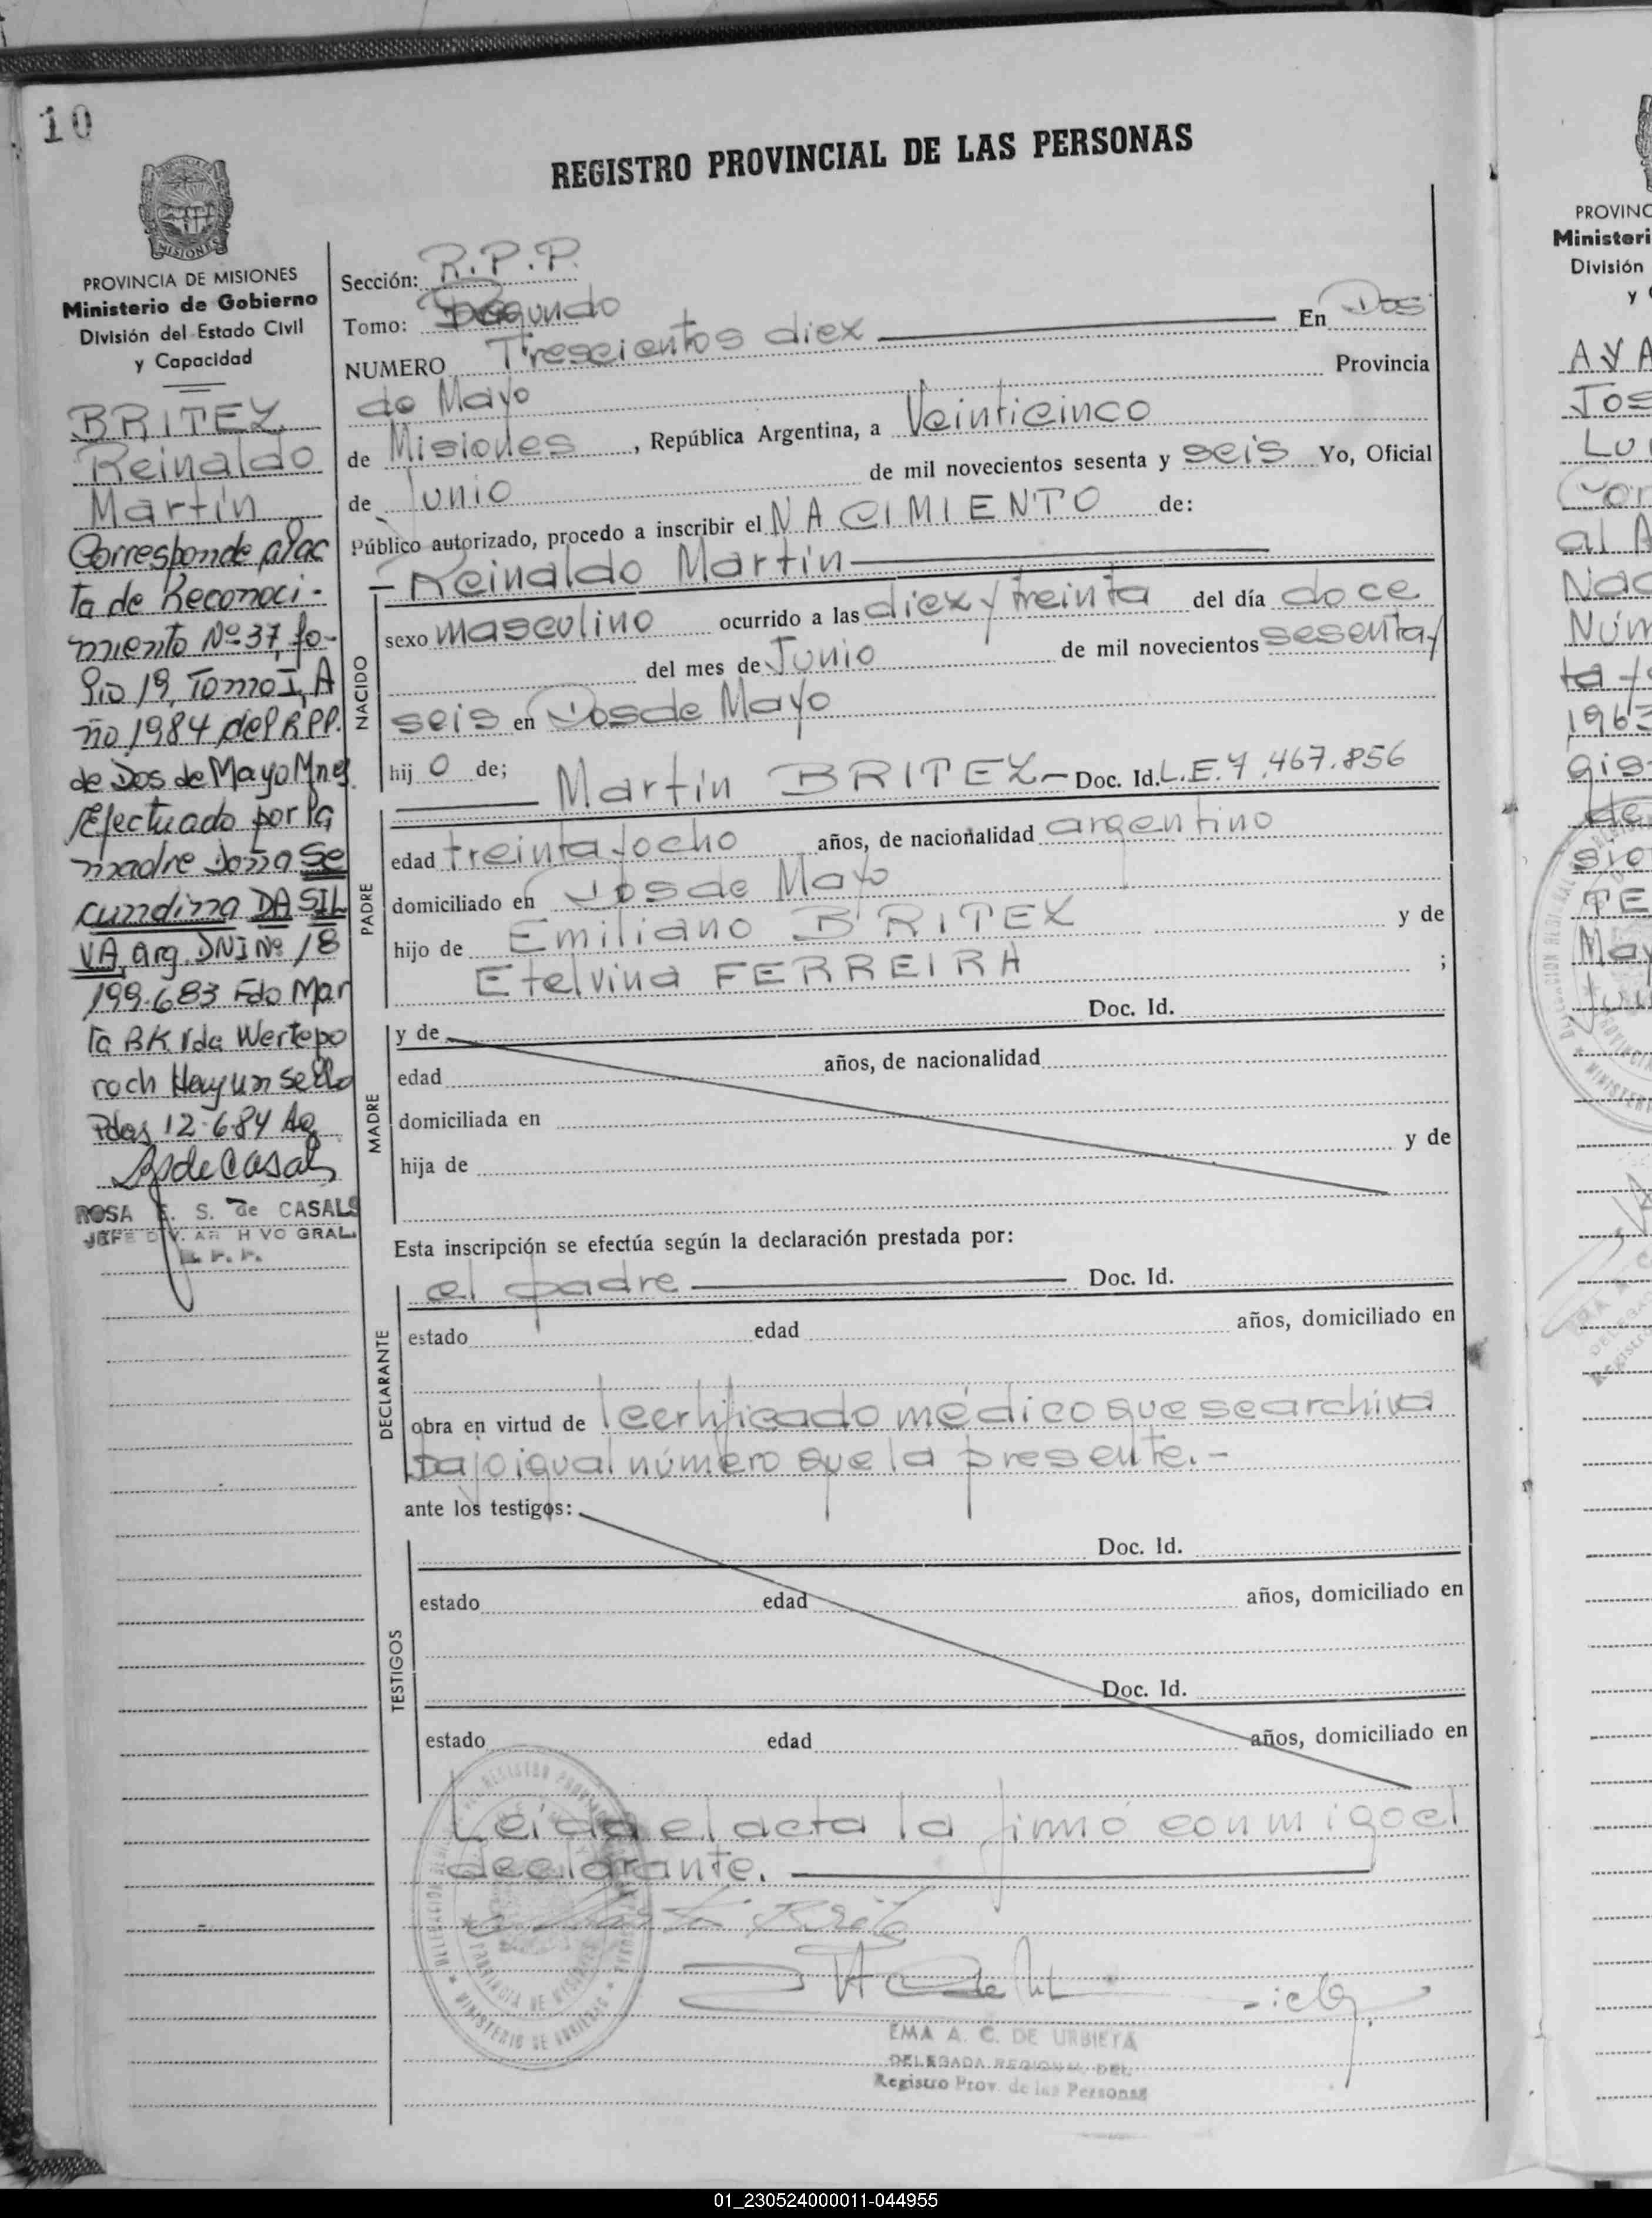 10
REGISTRO PROVINCIAL DE LAS PERSONAS
MISIONES
PROVINCIA DE MISIONES
Ministerio de Gobierno
División del Estado Civil
y Capacidad
BRITEZ
Reinaldo
Martín
Corresponde al ac
ta de Reconoci-
miento Nº 37, fo-
lio 19, Tomo I, A
ño 1984 del RPP.
de Dos de Mayo Mnes.
Efectuado por la
madre Doña Se
cundina DA SIL
VA, arg. DNI Nº 18
199.683 Fdo Mar
ta BK Ida Wertepo
roch Hay un sello
Pdas 12-6-84 Ag
ROSA E. S. de CASALS
JEFE DIV. ARCHIVO GRAL.
R. P. P.
Sección: R.P.P.
Tomo: Segundo
NUMERO Trescientos diez En Dos
de Mayo Provincia
de Misiones, República Argentina, a Veinticinco
de Junio de mil novecientos sesenta y seis Yo, Oficial
Público autorizado, procedo a inscribir el NACIMIENTO de:
- Reinaldo Martín
NACIDO
sexo masculino ocurrido a las diez y treinta del día doce
del mes de Junio de mil novecientos sesenta y
seis en Dos de Mayo
hij o de;
PADRE
Martín BRITEZ - Doc. Id. L.E.7.467.856
edad treinta y ocho años, de nacionalidad argentino
domiciliado en Dos de Mayo
hijo de Emiliano BRITEZ y de
Etelvina FERREIRA ;
MADRE
y de Doc. Id.
edad años, de nacionalidad
domiciliada en
hija de y de
Esta inscripción se efectúa según la declaración prestada por:
DECLARANTE
el padre Doc. Id.
estado edad años, domiciliado en
obra en virtud de certificado médico que se archiva
bajo igual número que la presente.-
ante los testigos:
TESTIGOS
Doc. Id.
estado edad años, domiciliado en
Doc. Id.
estado edad años, domiciliado en
Leída el acta la firmó conmigo el
declarante.
EMA A. C. DE URBIETA
DELEGADA REGIONAL DEL
Registro Prov. de las Personas
PROVINC
Ministeri
División
y
AYA
Jos
Lui
al A
Nac
Núm
ta y
1963
gis
TE
May
01_230524000011-044955